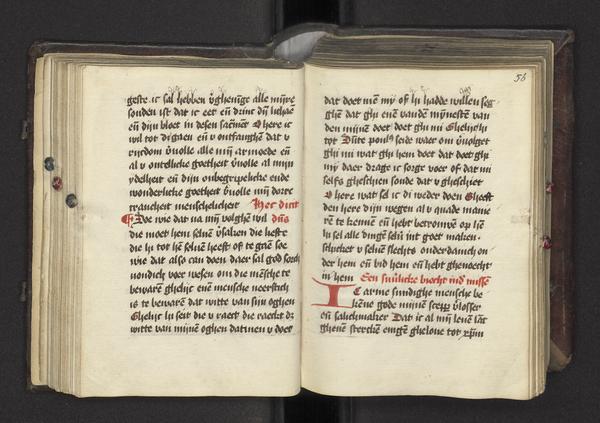 geste. ic sal hebben v̄ghenīge alle mijnre
sonden ist dat ic eet en̄ drinc dijn lichāe
en̄ dijn bloet in desen sacrm̄et O here ic
wil tot di gaen en̄ v ontfanghē dat v
rijcdom v̄nolle alle mijn armoede en̄
al v ontlike groetheit v̄nolle al mijn
ydelheit en̄ dijn onbegripelike ende
wonderlike groetheit v̄nolle mijn dorre
crancheit menschelicheit Hec dicit
Doe wie dat na mij volghē wil dn̄s
die moet hem seluē v̄saken die heste
die hi tot hē seluē heeft of te graē soe
wie dat also can doen daer sal god
uondich voer wesen om die mēsche te
bewarē ghelijc enē mensche neerstich
is te bewarē dat witte van sijn oghen
Ghelijc hi seit die v raect die raect di
witte van mijnē oghen dat men v doet
56
dat doet mē mij of hi hadde willen seg
ghē dat ghi enē vandē mynestē van
den mijnē doet doet ghi mi Ghelijc hi
tot Sūte pouls seide waer om v̄uolget
ghi mi wat ghi hem doet dat doet ghi
mij daer drage ic sorge voer of dat mi
selfs ghescien soude dat v ghesciet
O here wat sel ic di weder doen Gheeft
den here dijn wegen al v quade manie
rē te kennē en̄ hebt betrouwē op hē
hi sel alle dingē selū int goet maken
scluket v seluē slechts onder danich on
der hem en̄ bid hem en̄ hebt ghenoecht
in hem Een suūlike biecht ind̄ misse
IC arme sundighe mensche be
kēne gode mijnē scepp v̄losser
en̄ salichmaker Dat ic al mijn leuē lāc
gheuē stercken enigē gheloue tot xp̄m